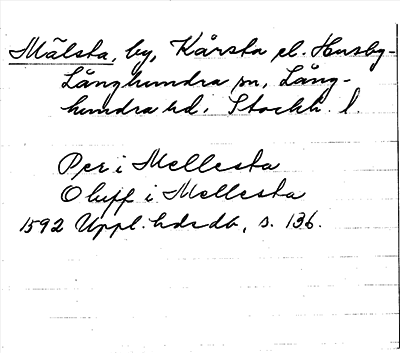 Mälsta, by, Kårsta el. Husby-
Långhundra sn, Lång-
hundra hd. Stockh. l.
Per i Mellesta
Oluff i Mellesta
1592 Uppl. hdrdb, s. 136.